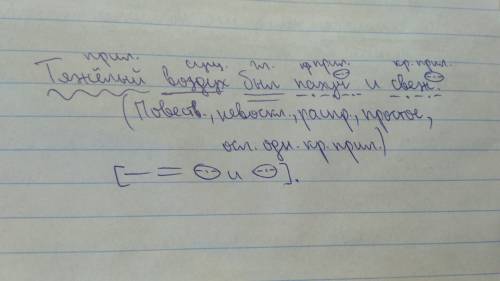 прил. сущ. гл. кр.прил. кр.прил.
Тяжёлый воздух был пахуч и свеж.
(Повеств., невоскл., распр., простое,
осл. одн. кр. прил.)
[— = и ].